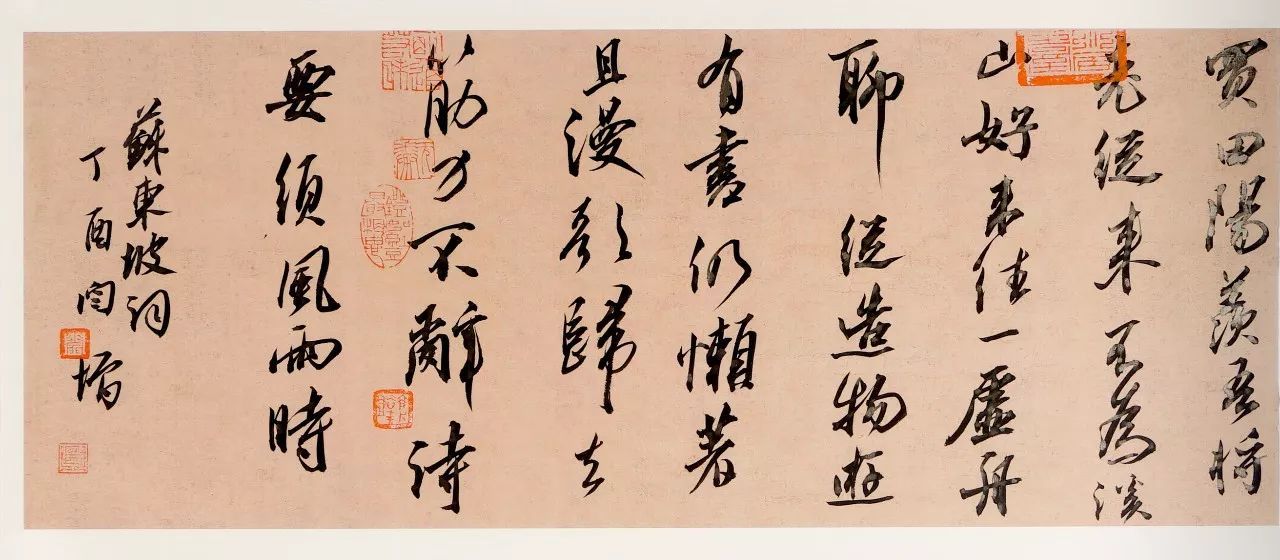 買田陽羨吾將
老從來只為溪
山好來往一虛舟
聊從造物遊
有書仍懶著
且漫歌歸去
筋力不辭詩
要須風雨時
蘇東坡詞
丁酉